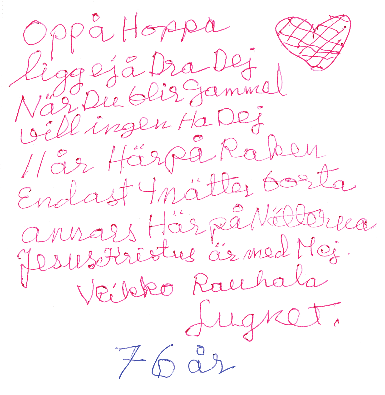 Oppå Hoppa
ligg ejå Dra Dej
När Du blir Gammel
vill ingen Ha Dej
11 år Här på Raken
Endast 4 nätter borta
annars Här på Nätterna
Jesus Kristus är med Mej.
Veikko Rauhala
Lugnet.
76 år